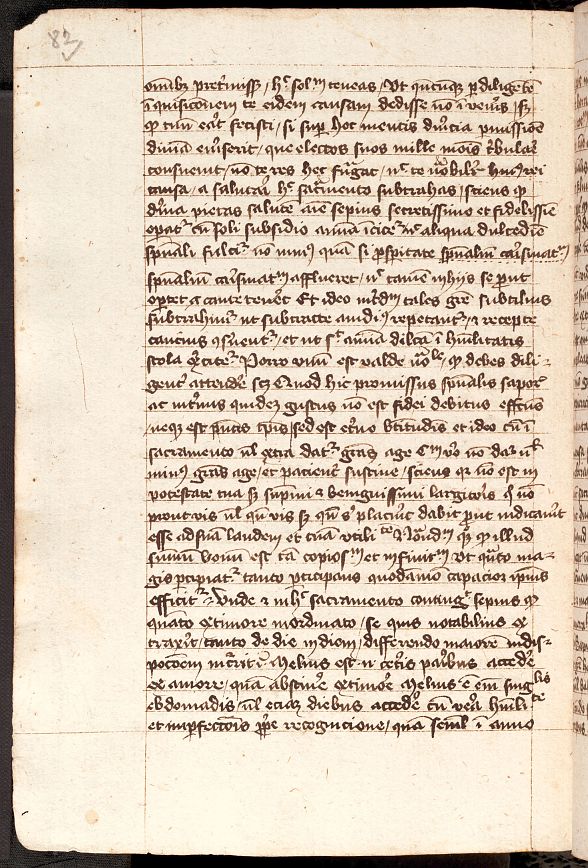 83
omnibus pretermissis, hoc solum teneas, Ut quicunque per diligentem
inquisicionem te eidem causam dedisse non inveneris, sed
quod tuum erat fecisti, si super hoc mentis duricia permissione
divina evenerit, que electos suos mille modis tribulare
consuevit, non te res hec fugat, nec te huiusmodi rei
causa, a salutari hoc sacramento subtrahas, sciens quod
divina pietas salutem anime sepius secretissimo et fidelissime
operatur cum soli subsidio animam incitet nec aliqua dulcedine
spirituali fulcitur non minus quam si prosperitate spiritualium carismatum
spiritualium carismatum afflueret, nec tamen in hiis se prout
oportet caute teneret Et ideo interdum tales gracie subtilius
subtrahuntur ut subtracte avidius repetantur, et recepte
caucius conserventur, et ut sic anima dilecta in humilitatis
scola exercitetur Porro unum est valde notabile, quod debes dili-
genter attendere scilicet Quod hic promissus spiritualis sapor
ac internus quidem gustus non est fidei debitus effectus
neque est presentis temporis, sed est eterne beatitudinis et ideo cum in
sacramento vel extra datur gracias age Cum vero non datur nichil
minus gracias age, et pacienter sustine, sciens quia non est in
potestate tua sed supremi et benignissimi largitoris qui non
prout vis vel quando vis sed quando sibi placuerit dabit prout iudicaverit
esse ad suam laudem et tuam utilitatem Notandum quoque quod illud
summum bonum est tam copiosum et infinitum Ut quanto ma-
gis percipiatur tanto percipiens quodammodo capacior ipsius
efficitur et Unde et in hoc sacramento contingit sepius quod
quanto ex timore inordinato, se quis notabilius ex
traxerit, tanto de die in diem, differendo maiorem indis-
posicionem incurrit Melius est enim ceteris paribus accedere
ex amore, quam abstinere ex timore Melius est enim singulis
ebdomadis, vel eciam diebus accedere cum vera humilitate
et imperfectionis proprie recognicione, quam semel in anno